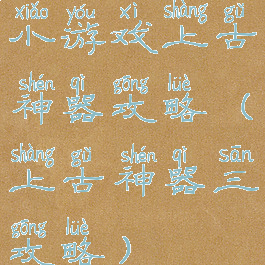 xiǎo yóu xì shàng gǔ
小游戏上古
shén qì gōng lüè
神器攻略（
shàng gǔ shén qì sān
上古神器三
gōng lüè
攻略）